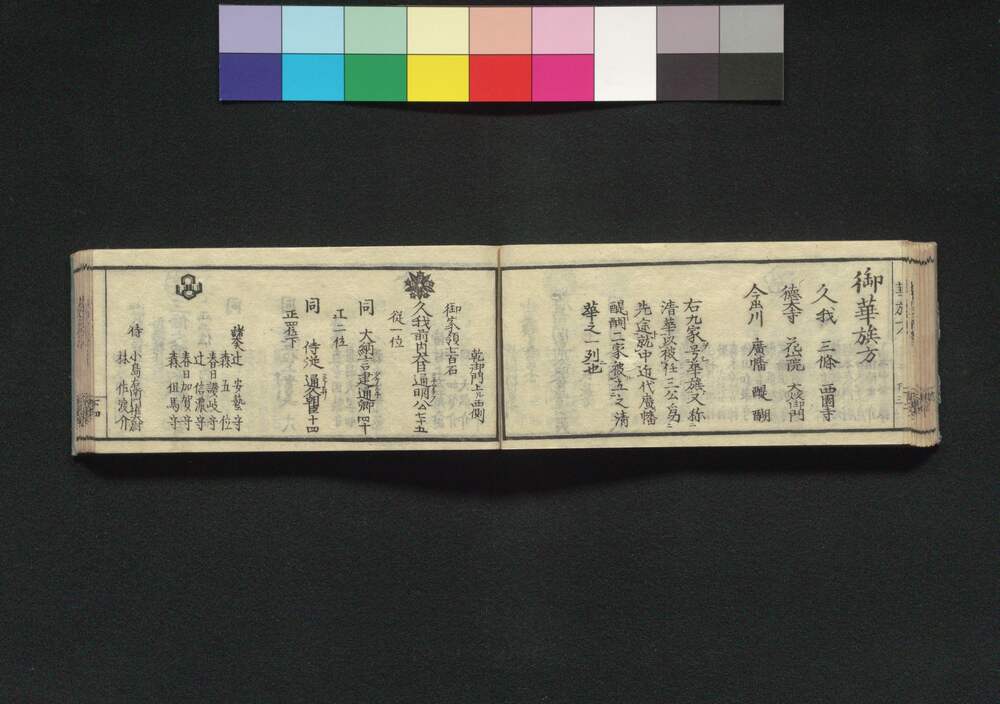 御華族方
久我 三條 西園寺
徳大寺 花院 大炊御門
今出川 廣幡 醍醐
右九家号華族又称ニ
清華以被任三公為ニ
先途就中近代廣幡
醍醐二家被加之清
華之一列也
乾御門上ル西側
御家領七百石
久我前内大臣通明公七十五
従一位
同 大納言建通卿四十
正二位
同 侍従 通久朝臣十四
正四位下
諸大夫 辻 安藝守
森 五位
春日讃岐守
辻 信濃守
春日加賀守
森 但馬守
侍 小島右衛門大尉
林 作渡介